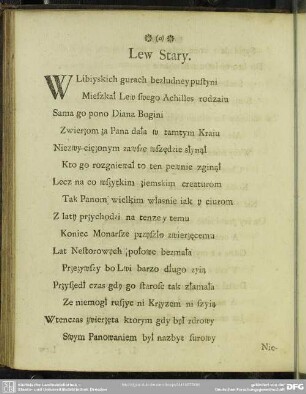 Lew Stary.
W Libiyskich gurach bezludney pustyni
Mieszkał Lew swego Achilles rodzaiu
Sama go pono Diana Bogini
Zwierzom za Pana dała w tamtym Kraiu
Niezwyciężonym zawsze wszędzie słynął
Kto go rozgniewał to ten pewnie zginął
Lecz na co wszytkim ziemskim creaturom
Tak Panom wielkim własnie iak y ciurom
Z laty przychodzi na tenże y temu
Koniec Monarsze przyszło zwierzęcemu
Lat Nestorowych społowę bezmała
Przeżywszy bo Lwi barzo długo żyią
Przyszedł czas gdy go starosc tak złamała
Ze niemogł ruszyc ni Krzyżem ni szyią
Wtenczas zwierzęta ktorym gdy był zdrowy
Swym Panowaniem był nazbyt surowy
Nie-
DFG